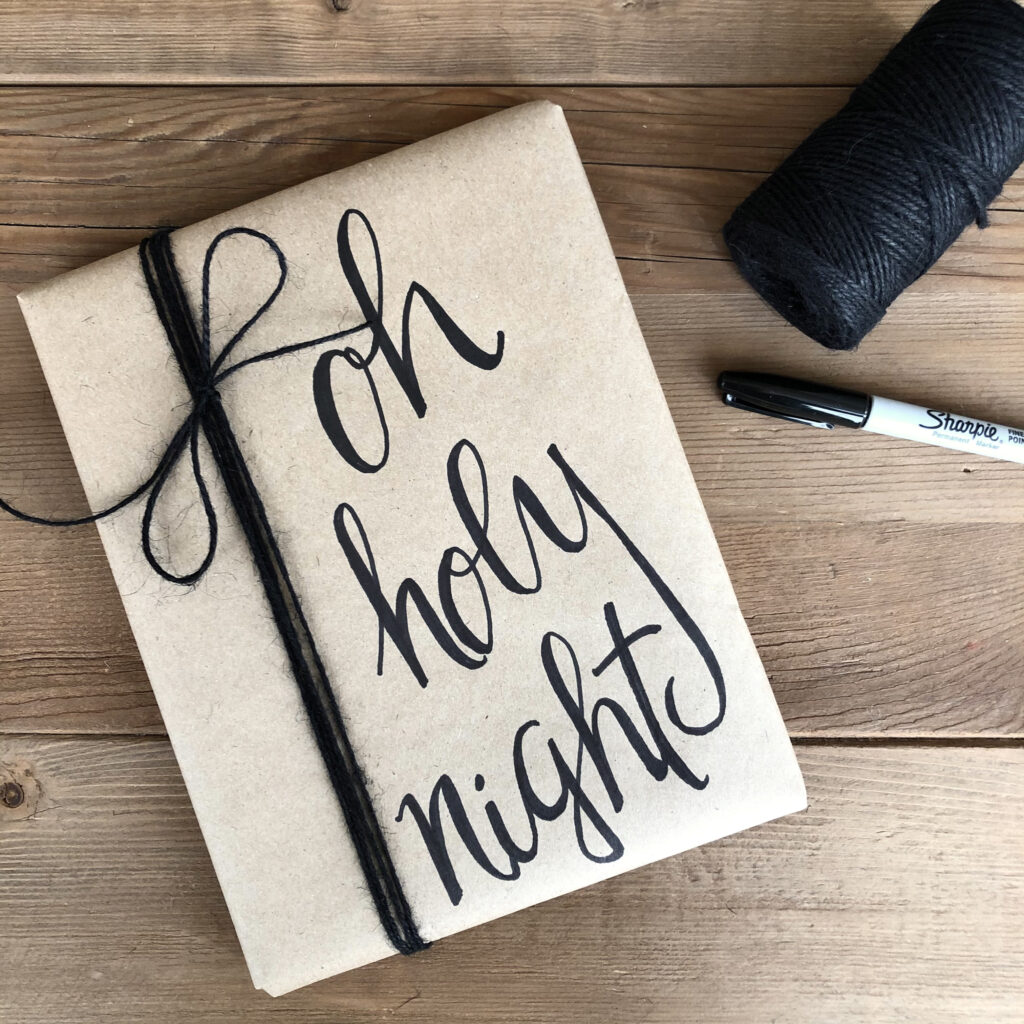 oh
holy
night
Sharpie®
Permanent Marker
FINE
POIN